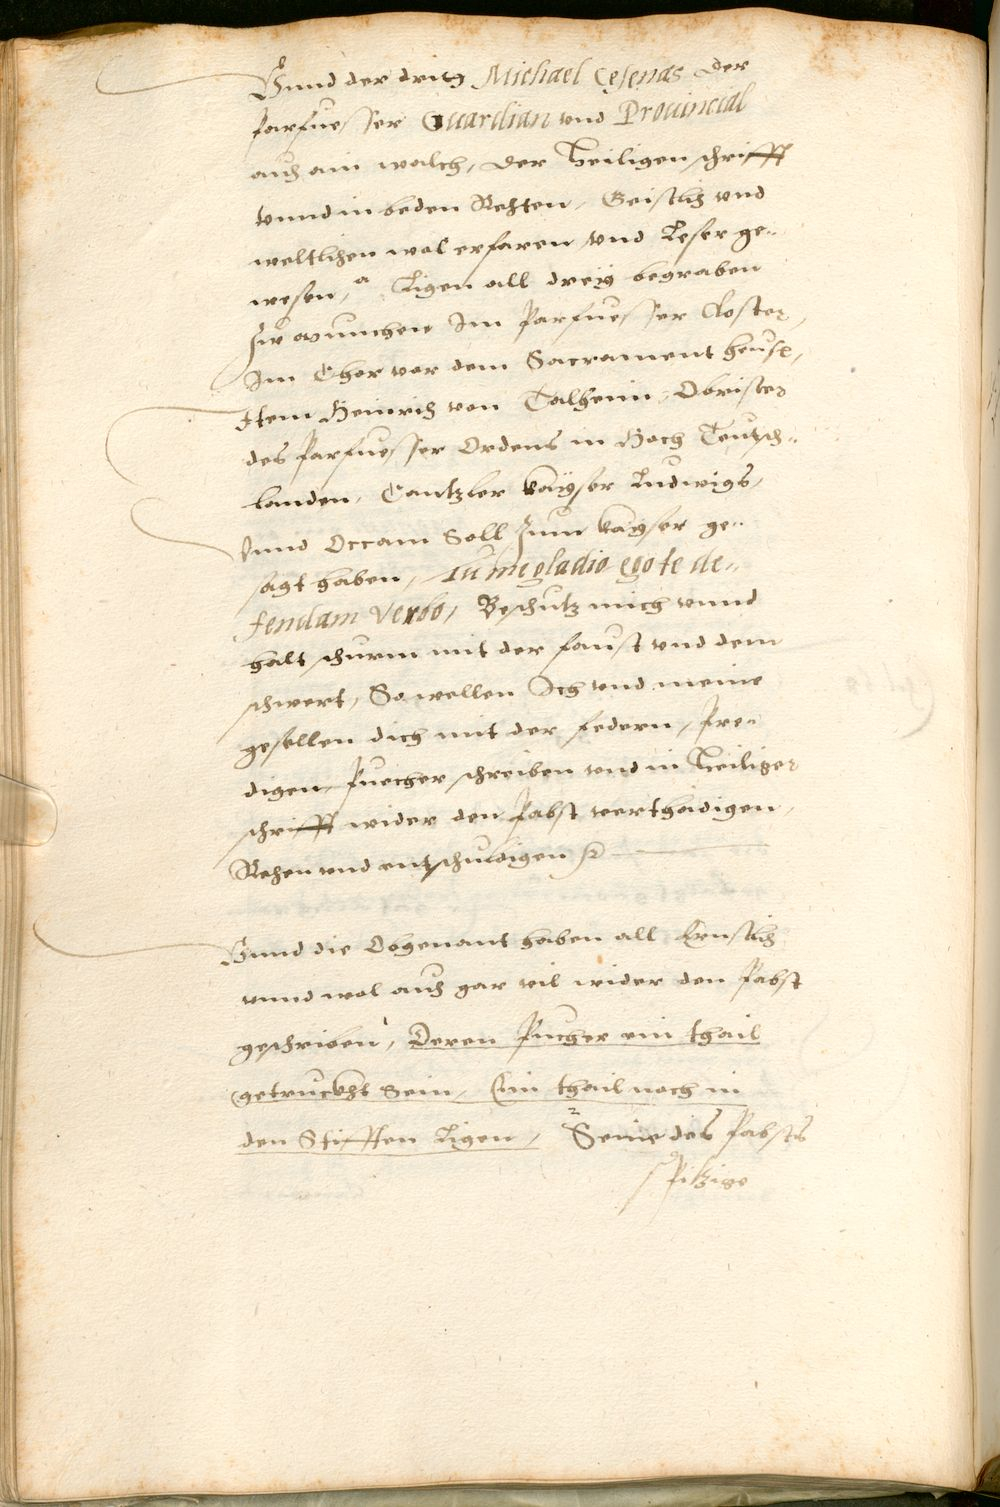 Vnnd der drits Michael Cesenas der
Parfuesser Guardian vnd Prouincial
auch ain walch, der heiligen schrifft
vnnd in beden Rechten, Geistlich vnd
weltlichen wol erfaren vnd Leser ge=
wesen, Ligen all drey begraben
zw munchen Im Parfuesser Closter,
Im Chor vor dem Sacrament heusl,
Item Heinrich von Talhenn, Obrister
des Parfuesser Ordens in Hoch Teutsch=
landen, Cantzler kayser Ludwigs,
Vnnd Occam Soll zum kayser ge=
sagt haben, Tu me gladio ego te de=
fendam verbo, Beschutz mich vnnd
halt schurm mit der faust vnd dem
schwert, So wellen Ich vnd meine
gesellen dich mit der federn, Pre=
digen, Puecher schreiben vnd in heiliger
schrifft wider den Pabst verthaidigen,
Rechen vnd entschuldigen
Vnnd die Obgenant haben all Ernstlich
vnnd wol auch gar vil wider den Pabst
geschriben, Deren Pucher ein thail
getruckht sein, Ein thail noch in
den Stifften Ligen, Seine des Pabsts
spitzige